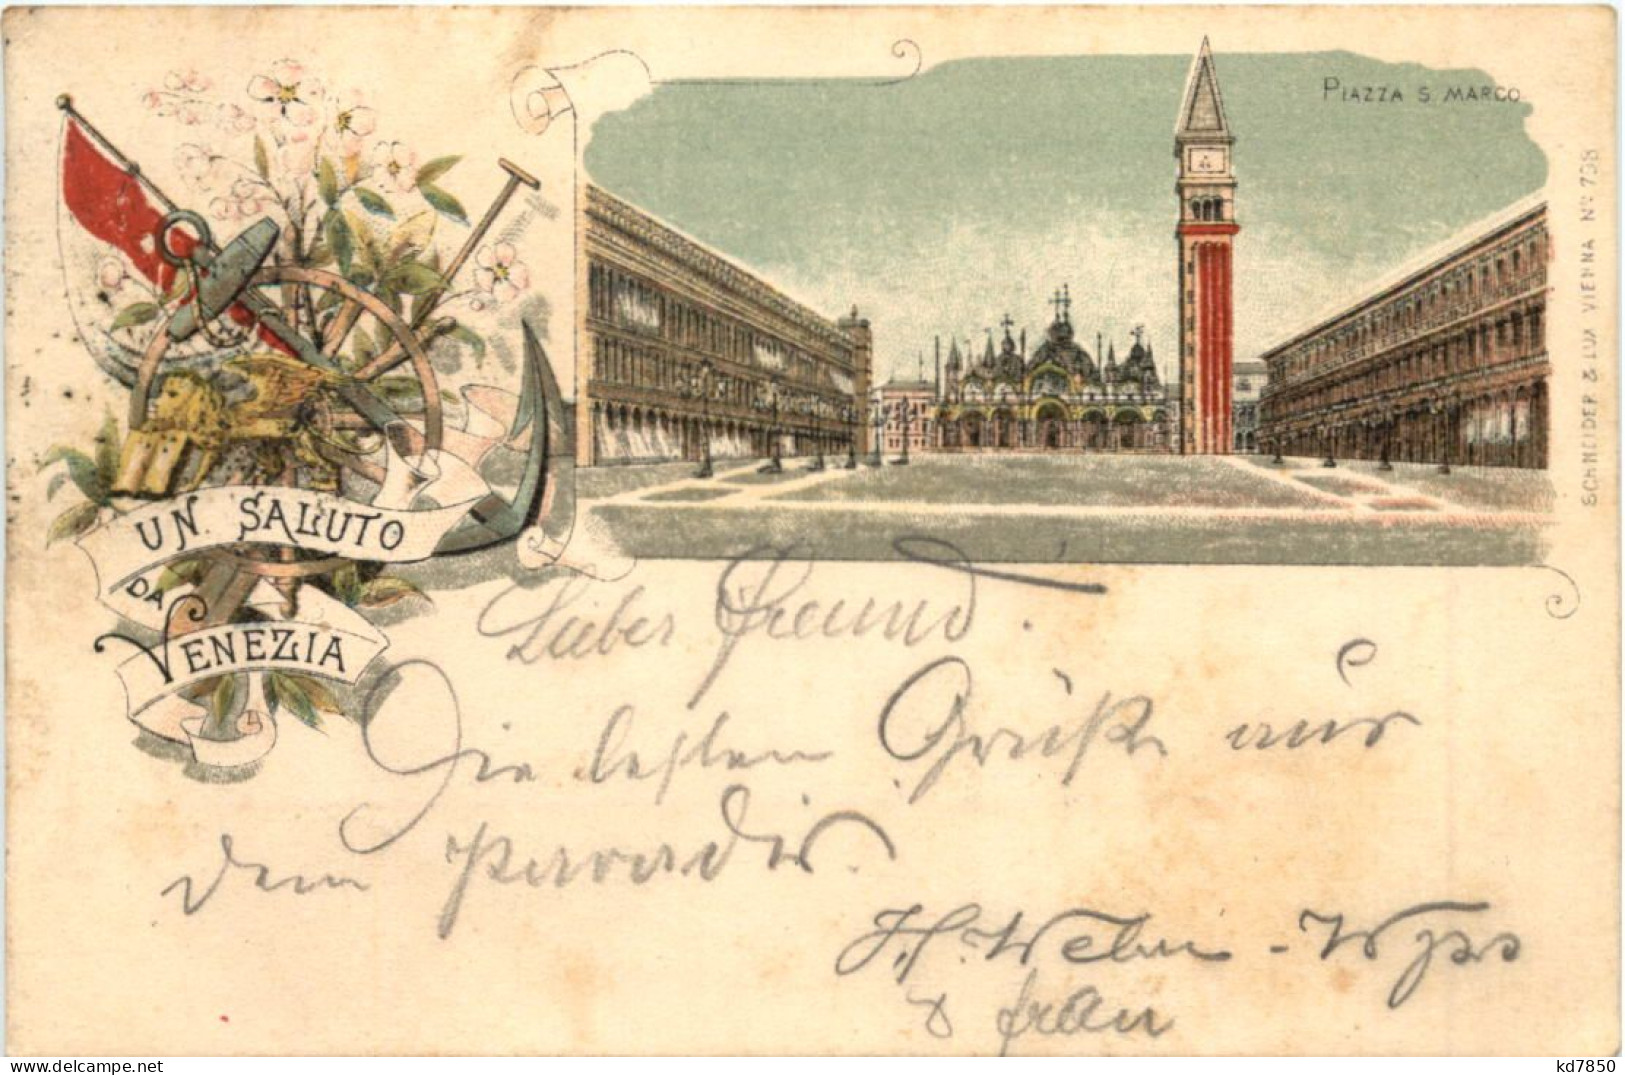 PIAZZA S. MARCO
SCHNEIDER & LUX VIENNA No 768
UN SALUTO
DA
VENEZIA
Lieber Freund!
Die besten Grüße aus
dem Paradis.
& Frau
delcampe.net
kd7850